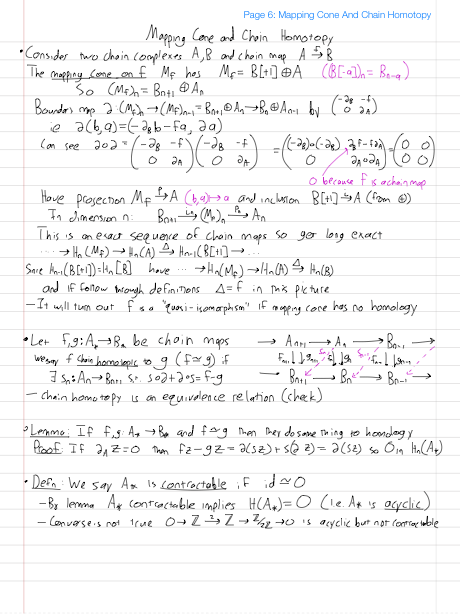 Page 6: Mapping Cone And Chain Homotopy
Mapping Cone and Chain Homotopy
• Consider two chain complexes A,B and chain map A →f B
The mapping cone on f M_f has M_f = B[+1] ⊕ A (B[-a])_n = B_{n-a})
So (M_f)_n = B_{n+1} ⊕ A_n
Boundary map ∂:(M_f)_n → (M_f)_{n-1} = B_{n+1} ⊕ A_n → B_n ⊕ A_{n-1} by (-∂_B -f / 0 ∂_A)
ie ∂(b,a) = (-∂_B b - fa, ∂a)
Can see ∂∘∂ = (-∂_B -f / 0 ∂_A)(-∂_B -f / 0 ∂_A) = ((-∂_B)∘(-∂_B) ∂_B f - f∂_A / 0 ∂_A∘∂_A) = (0 0 / 0 0)
0 because f is a chain map
Have projection M_f →p A (b,a) → a and inclusion B[+1] → A (from ⊕)
In dimension n: B_{n+1} →i_n (M_f)_n →p_n A_n
This is an exact sequence of chain maps so get long exact
··· → H_n(M_f) → H_n(A) →Δ H_{n-1}(B[+1]) → ...
Since H_{n-1}(B[+1]) = H_n[B] have ··· → H_n(M_f) → H_n(A) →Δ H_n(B)
and if follow through definitions Δ = f in this picture
– It will turn out f is a "quasi-isomorphism" if mapping cone has no homology
• Let f,g: A_* → B_* be chain maps → A_{n+1} → A_n → B_{n-1} →
we say f chain homotopic to g (f ≃ g) if f_{n+1} g_{n+1} s_n f_n g_n f_{n-1} g_{n-1}
∃ s_n: A_n → B_{n+1} s.t. s∘∂ + ∂∘s = f-g → B_{n+1} → B_n → B_{n-1} →
– chain homotopy is an equivalence relation (check)
• Lemma: If f,g: A_* → B_* and f ≃ g then they do same thing to homology
Proof: If ∂_A z = 0 then fz - gz = ∂(sz) + s(∂z) = ∂(sz) so 0 in H_n(A_*)
• Defn: We say A_* is contractable if id ≃ 0
– By lemma A_* contractable implies H(A_*) = 0 (i.e. A_* is acyclic)
– Converse is not true 0 → ℤ →2 ℤ → ℤ/2ℤ → 0 is acyclic but not contractable